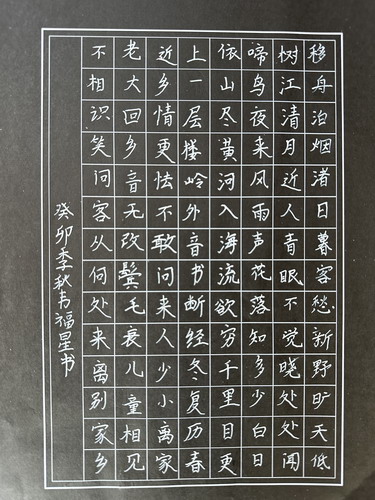 移舟泊烟渚日暮客愁新野旷天低
树江清月近人青眠不觉晓处处闻
啼鸟夜来风雨声花落知多少白日
依山尽黄河入海流欲穷千里目更
上一层楼岭外音书断经冬复历春
近乡情更怯不敢问来人少小离家
老大回乡音无改鬓毛衰儿童相见
不相识笑问客从何处来离别家乡
癸卯季秋韦福星书